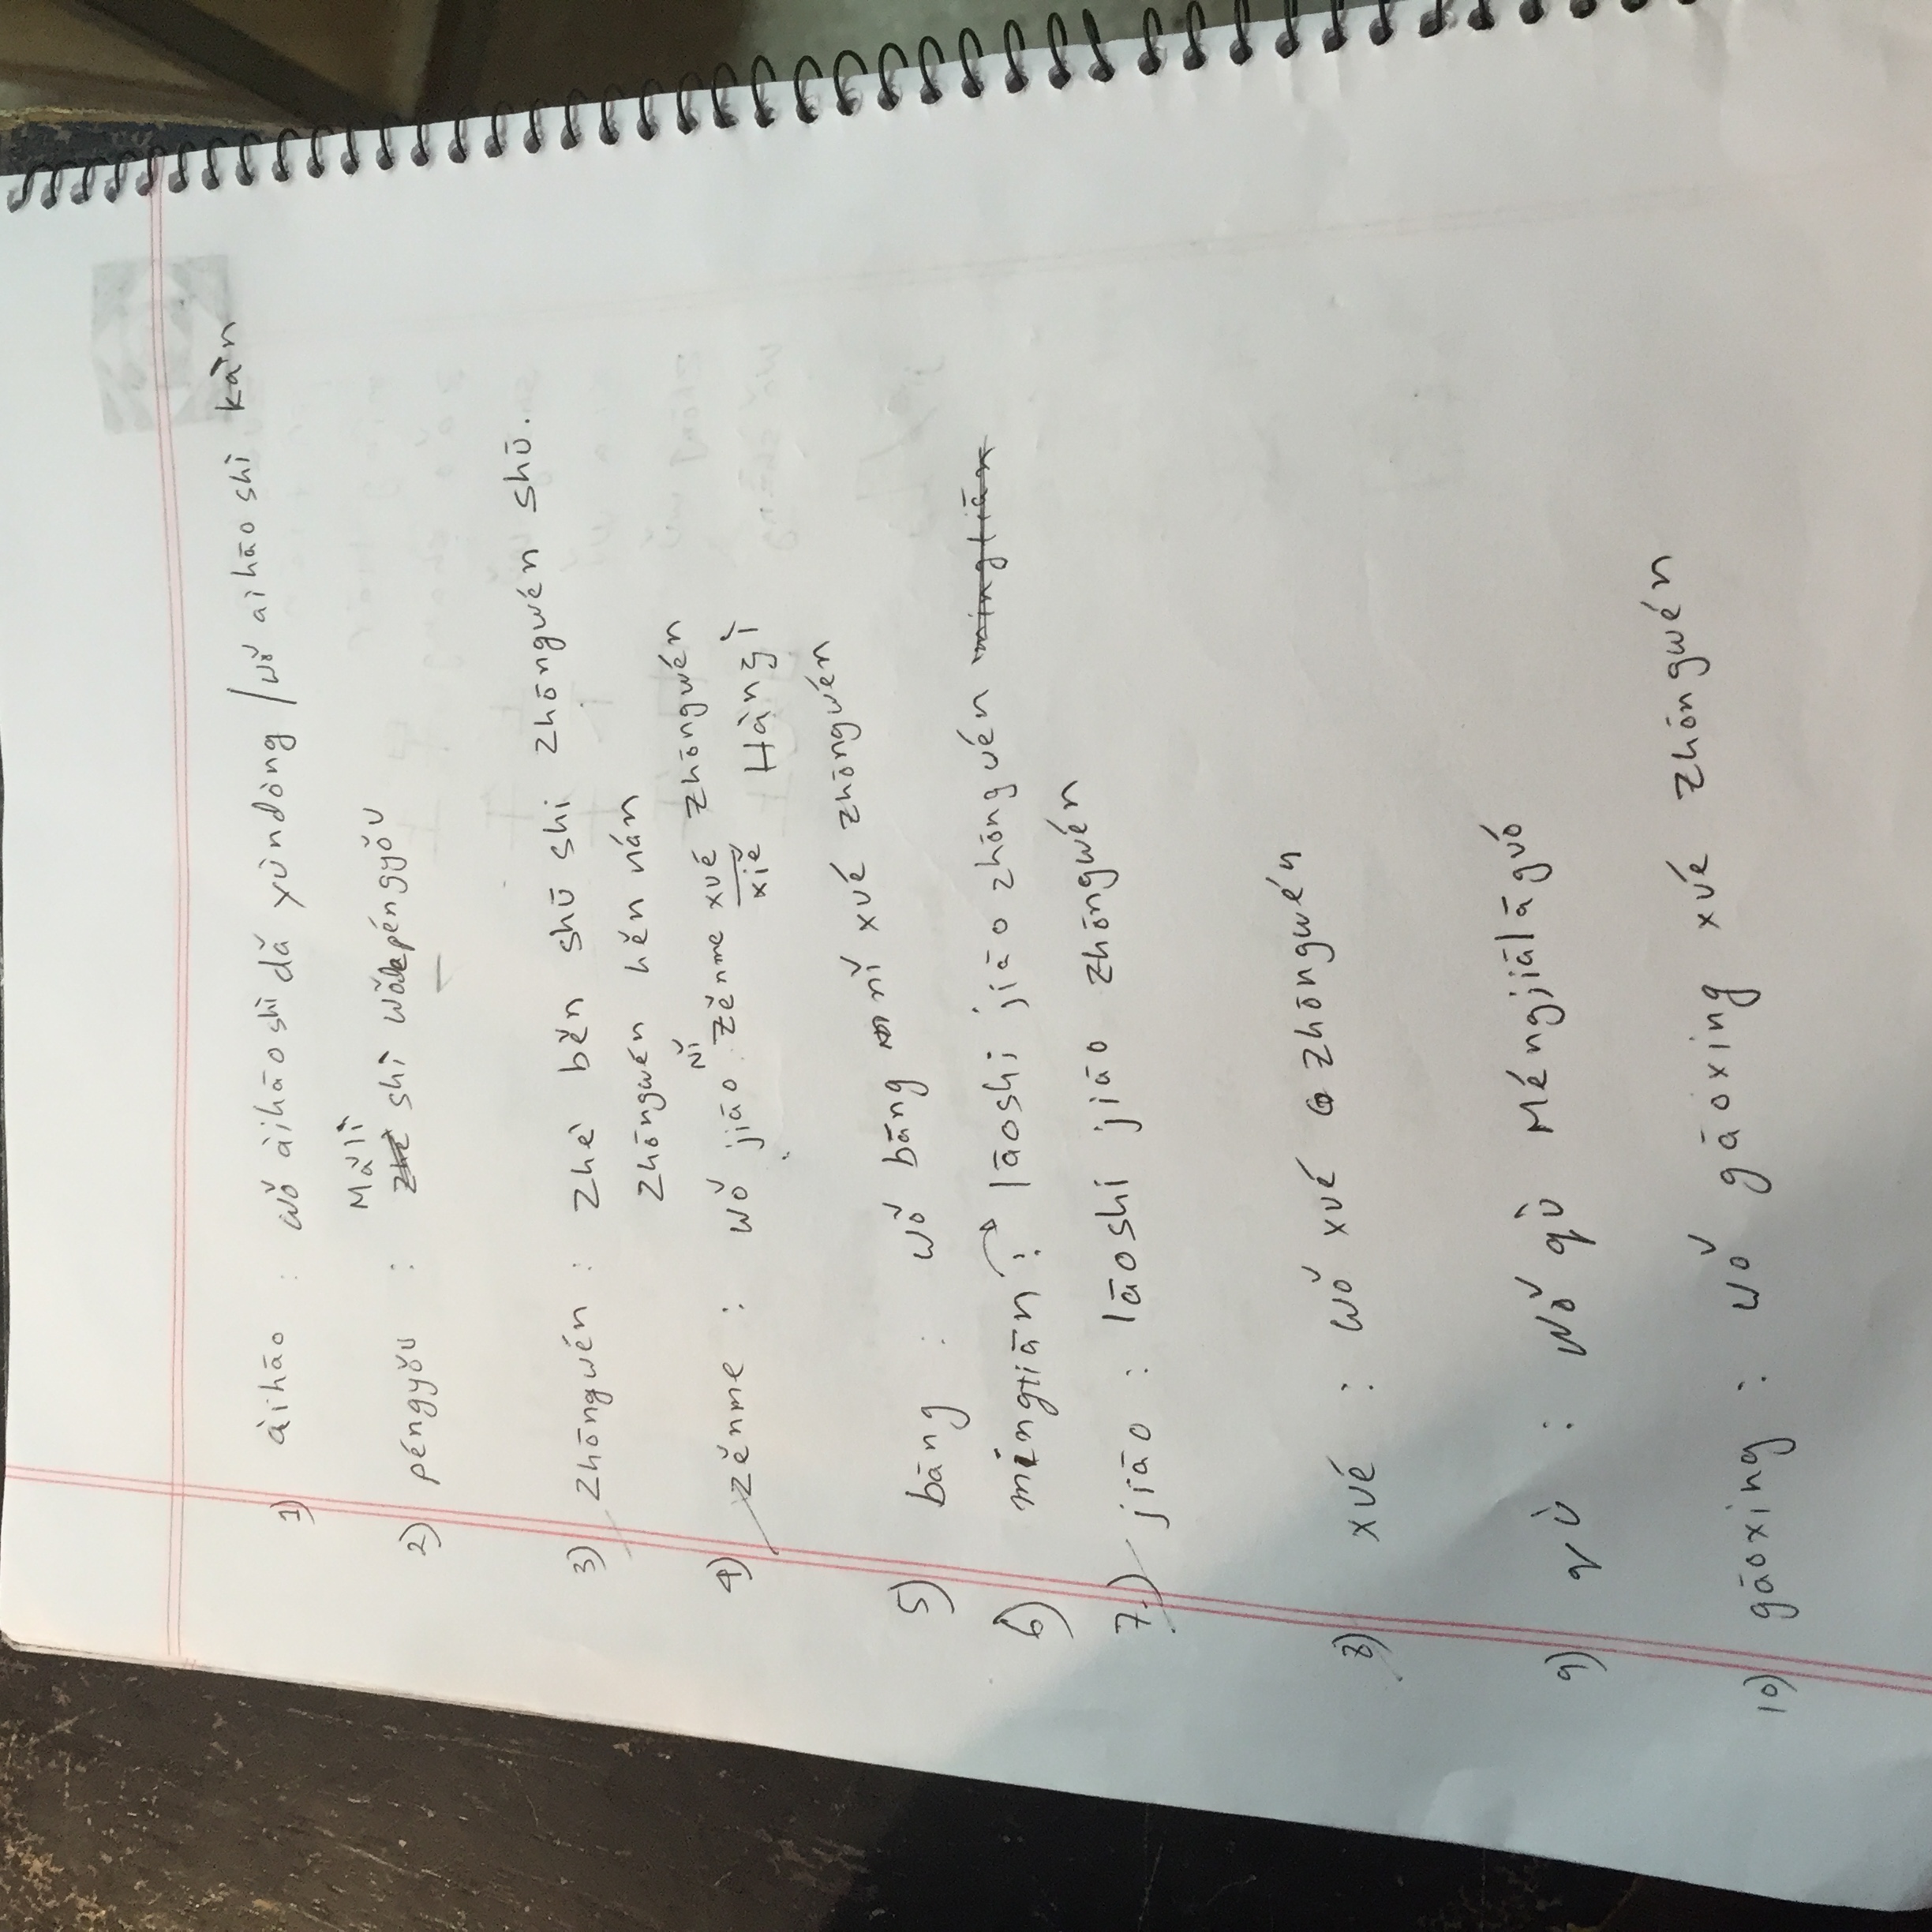 1) àihāo : wǒ àihāo shì dǎ yùndòng / wǒ aihāo shì kàn
Mǎlì
2) péngyǒu : shì wǒde péngyǒu
3) Zhōngwén : Zhè běn shū shi Zhōngwén shū.
Zhōngwén hěn nán
nǐ
4) zěnme : wǒ jiāo zěnme xué Zhōngwén
xiě Hànzì
5) bāng : wǒ bāng nǐ xué zhōngwén
6) míngtiān ? lāoshi jiāo zhōngwén mingtiān
7.) jiāo : lāoshi jiāo zhōngwén
8) xué : wǒ xué zhōngwén
9) qù : wǒ qù Méngjiālāguó
10) gāoxing : wǒ gāoxing xué Zhōngwén